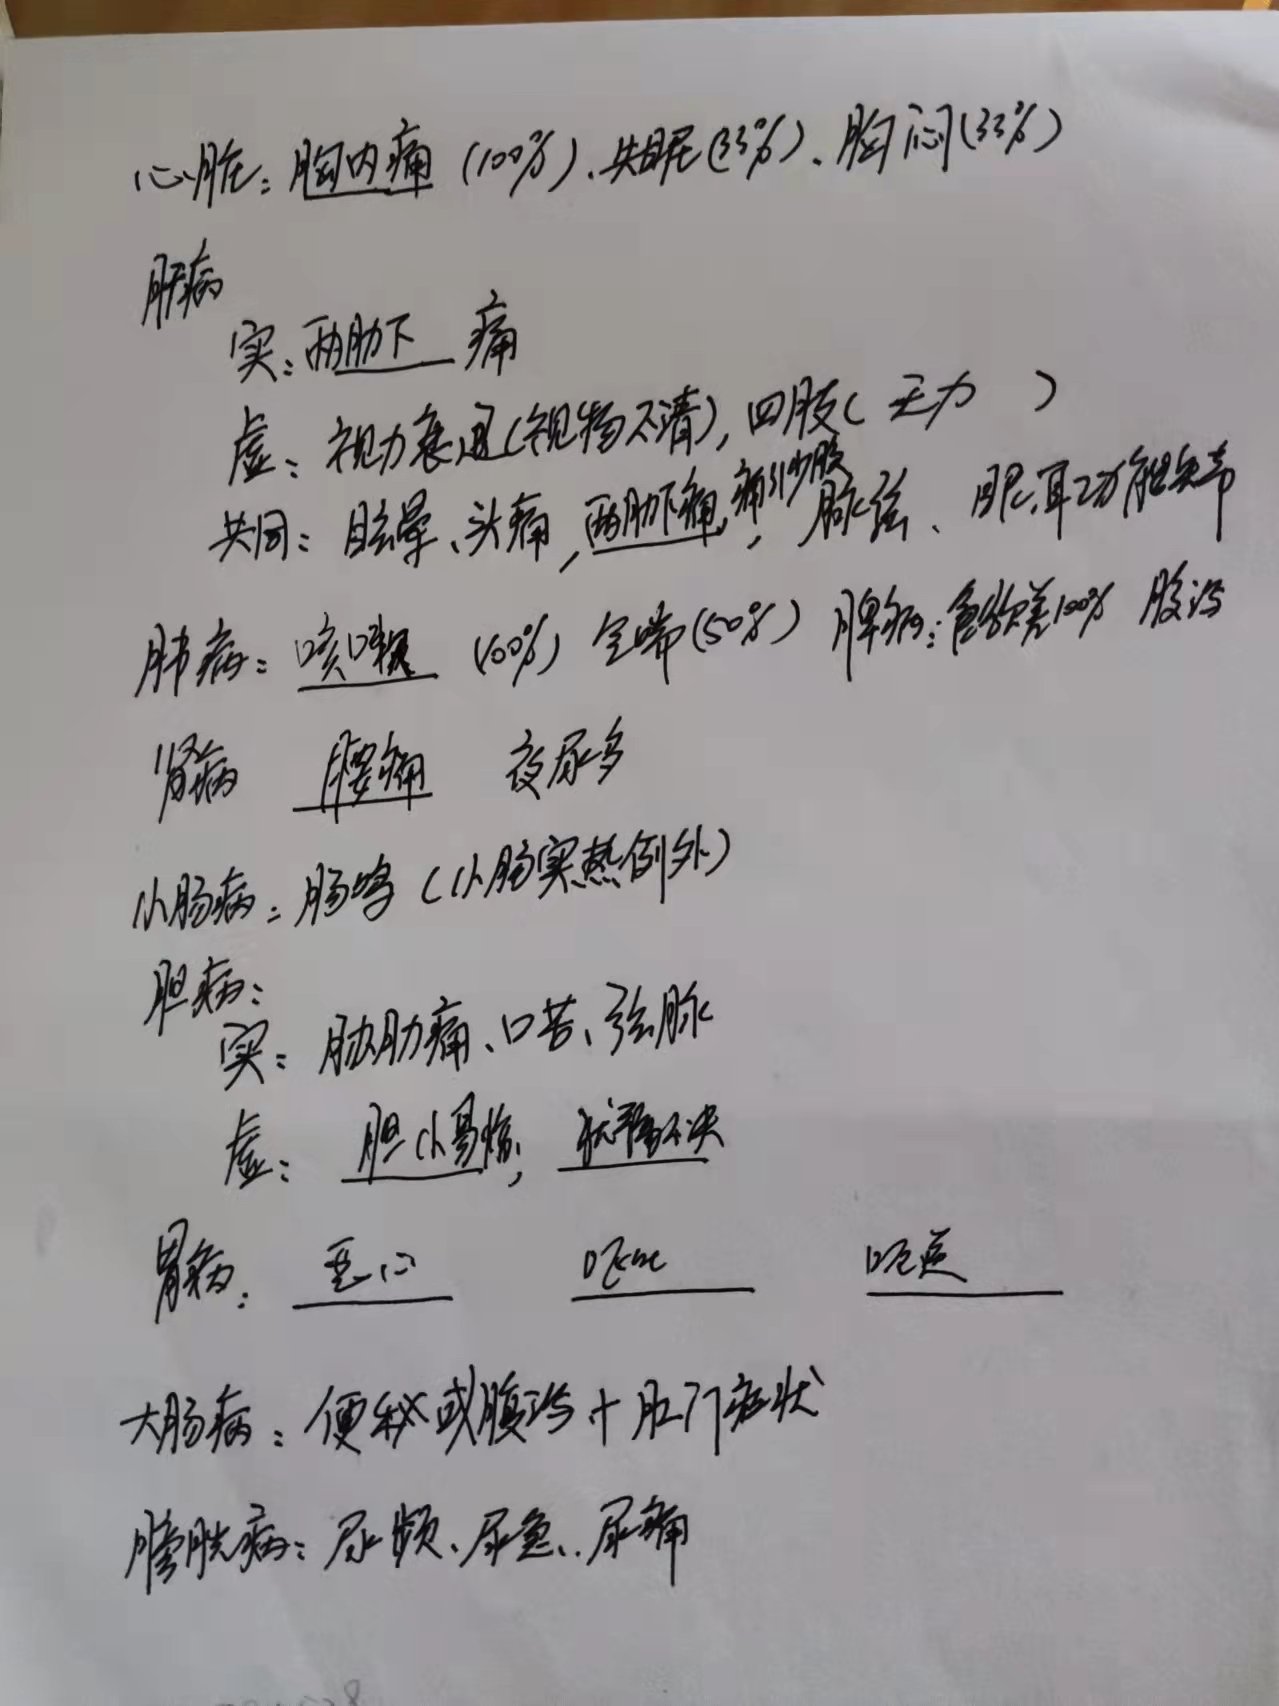 心脏：胸内痛（100%）、失眠（33%）、胸闷（33%）
肝病
实：两胁下 痛
虚：视力衰退（视物不清），四肢（无力）
痛引少腹
共同：目眩晕、头痛，两胁下痛，脉弦、眼、耳功能失常
肺病：咳嗽（100%）气喘（50%）脾病：食欲差100% 腹泻
肾病 腰痛 夜尿多
小肠病：肠鸣（小肠实热例外）
胆病：
实：胁肋痛、口苦、弦脉
虚：胆小易惊，犹豫不决
胃病：恶心 呕吐 呃逆
大肠病：便秘或腹泻+肛门症状
膀胱病：尿频、尿急、尿痛